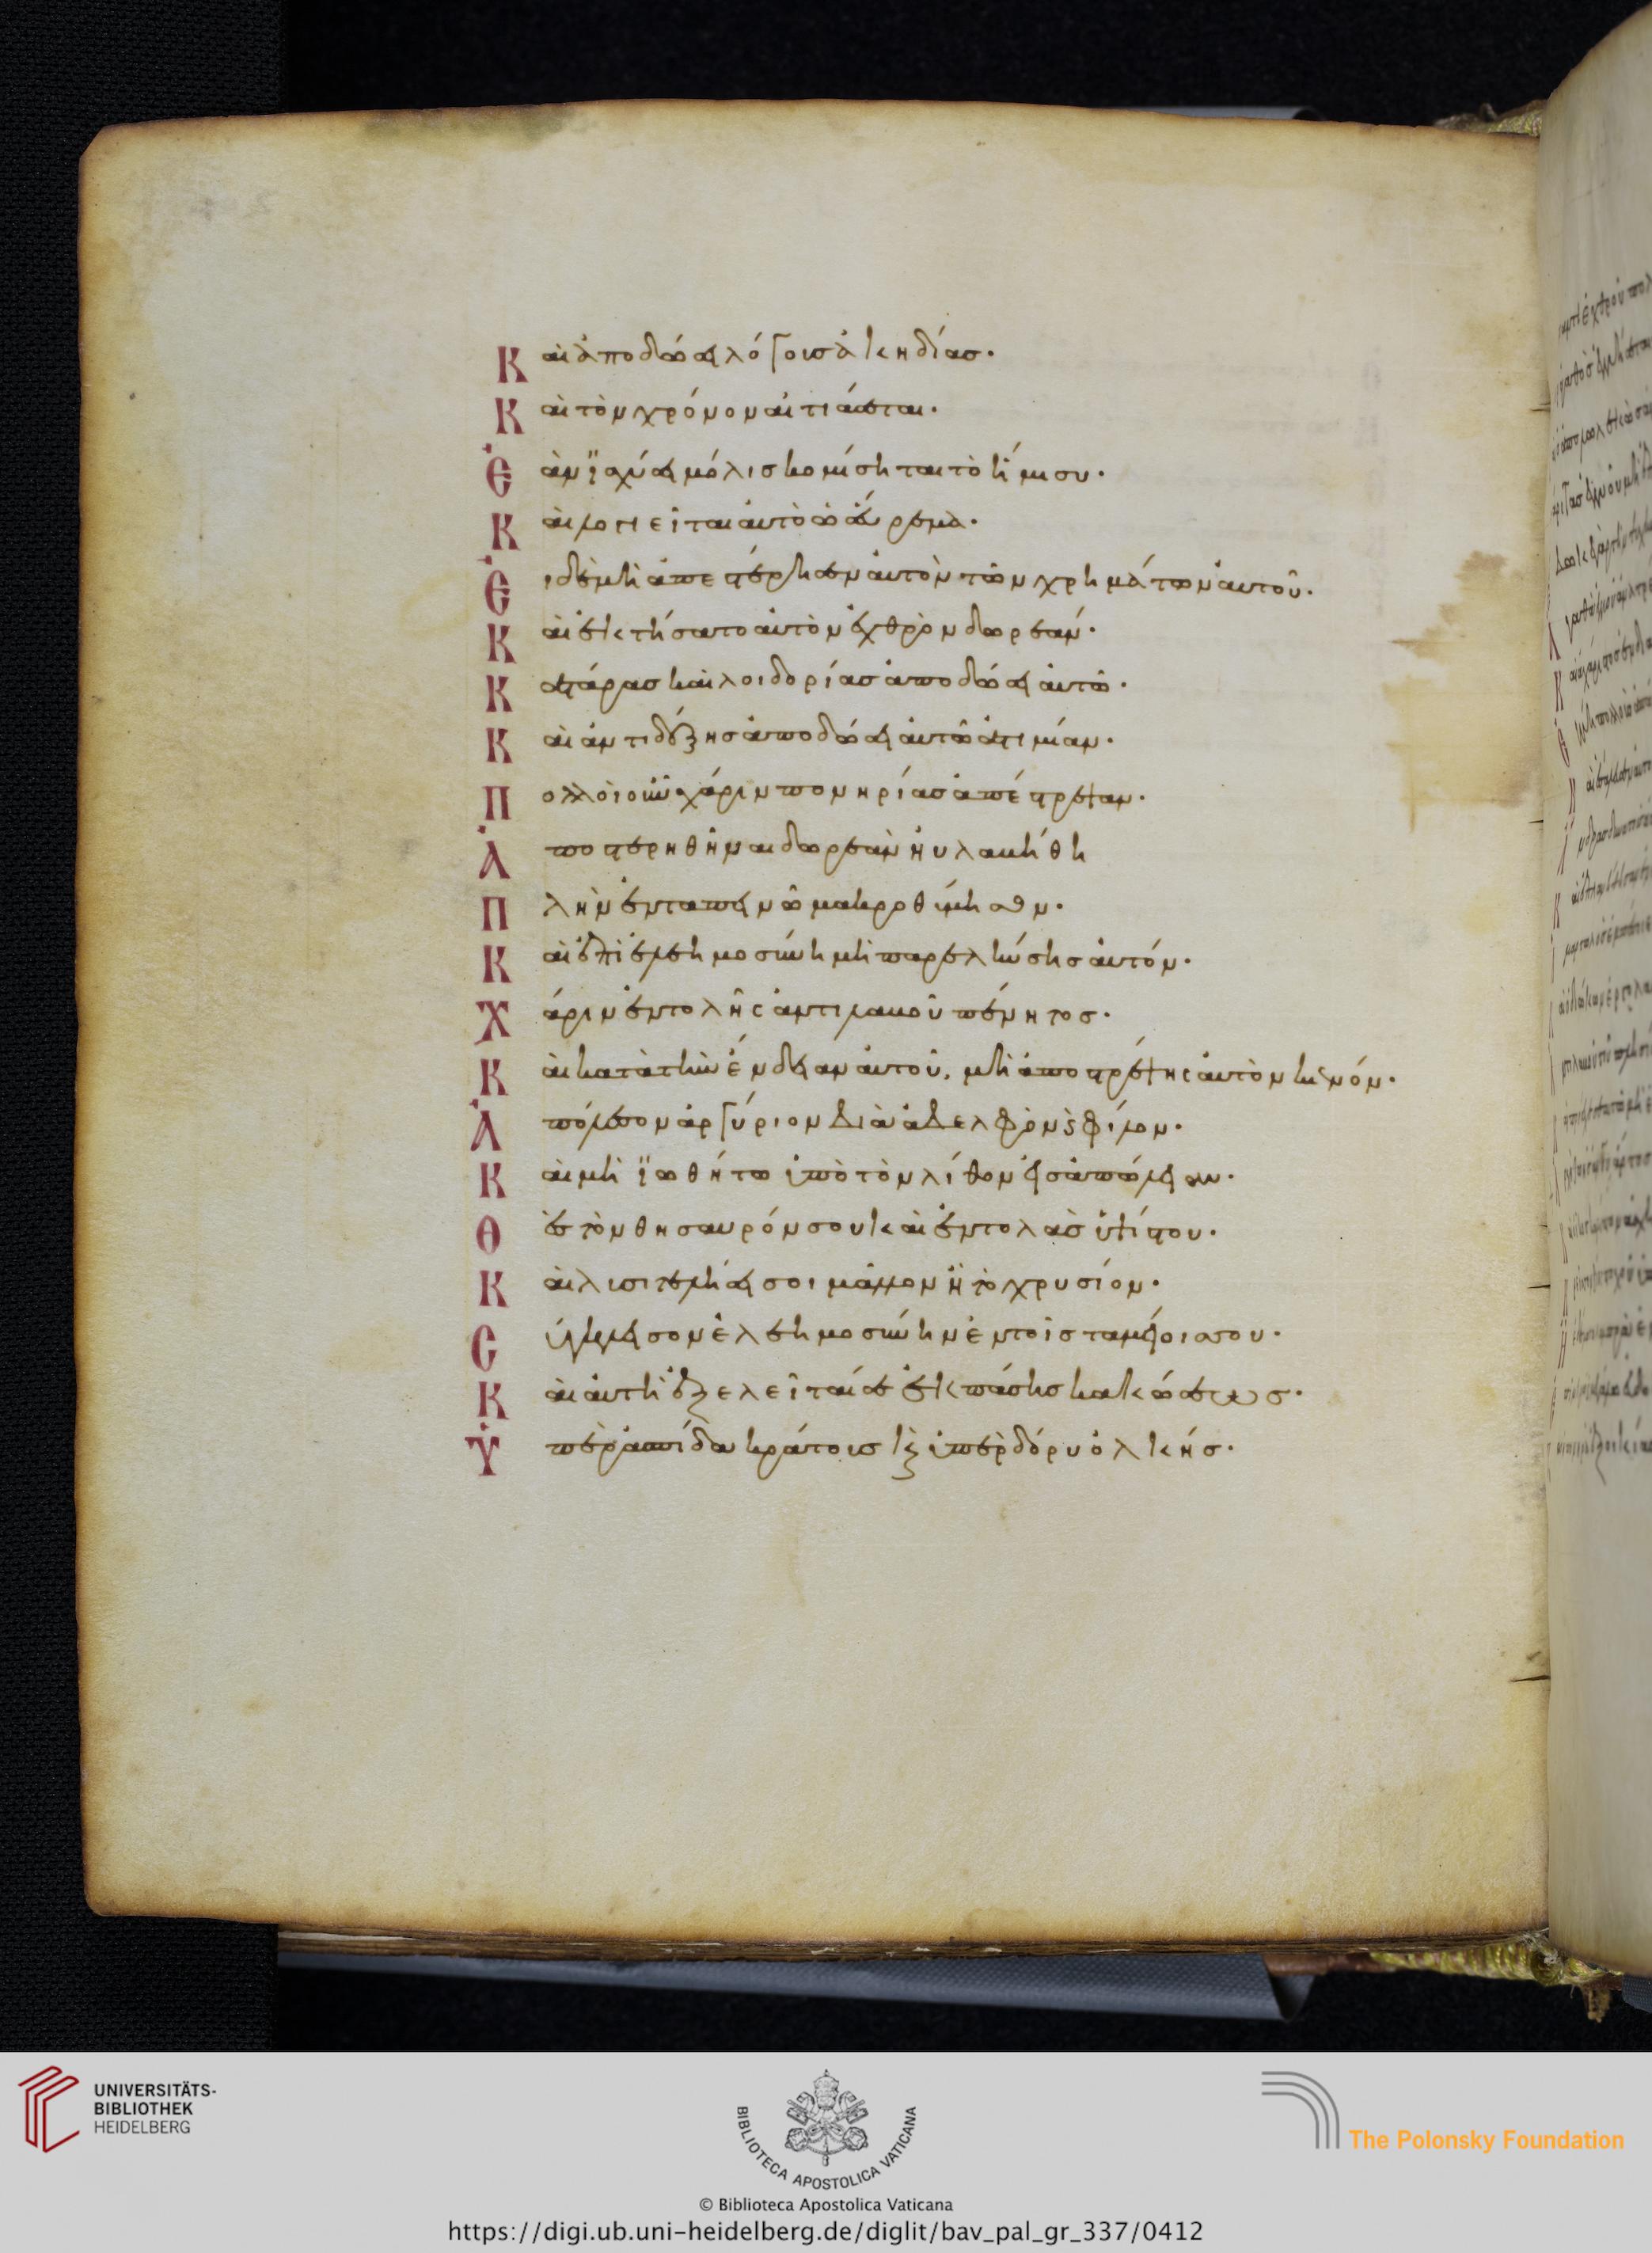 Καὶ ἀποδώσει λόγους ἀκηδίας·
Καὶ τὸν χρόνον αἰτιάσεται·
Ἐὰν ἰσχύσει μόλις κομίσηται τὸ ἥμισυ·
Καὶ λογιεῖται αὐτὸ ὡς εὕρεμα·
Εἰ δὲ μὴ ἀπεστέρησεν αὐτὸν τῶν χρημάτων αὐτοῦ·
Καὶ ἐκτήσατο αὐτὸν ἐχθρὸν δωρεάν·
Κατάρας καὶ λοιδορίας ἀποδώσει αὐτῶ·
Καὶ ἀντὶ δόξης ἀποδώσει αὐτῶ ἀτιμίαν·
Πολλοὶ οὐ χάριν πονηρίας ἀπέστρεψαν·
Ἀποστερηθῆναι δωρεὰν ηὐλαβήθη
Πλὴν ἐν ταπεινῶ μακροθύμησον·
Καὶ ἐπὶ ἐλεημοσύνη μὴ παρελκύσης αὐτόν·
Χάριν ἐντολῆς ἀντιλαβοῦ πένητος·
Καὶ κατὰ τὴν ἔνδειαν αὐτοῦ, μὴ ἀποστρέψης αὐτὸν κενόν·
Ἀπόλεσον ἀργύριον διὰ ἀδελφὸν καὶ φίλον·
Καὶ μὴ ἰωθήτω ὑπὸ τὸν λίθον εἰς ἀπώλειαν·
Θὲς τὸν θησαυρόν σου κατ' ἐντολὰς ὑψίστου·
Καὶ λυσιτελήσει σοι μᾶλλον ἢ τὸ χρυσίον·
Σύγκλεισον ἐλεημοσύνην ἐν τοῖς ταμείοις σου·
Καὶ αὐτὴ ἐξελεῖταί σε ἐκ πάσης κακώσεως·
Ὑπὲρ ἀσπίδα κράτους καὶ ὑπὲρ δόρυ ὀλκῆς·
UNIVERSITÄTS-
BIBLIOTHEK
HEIDELBERG
BIBLIOTECA APOSTOLICA VATICANA
The Polonsky Foundation
© Biblioteca Apostolica Vaticana
https://digi.ub.uni-heidelberg.de/diglit/bav_pal_gr_337/0412